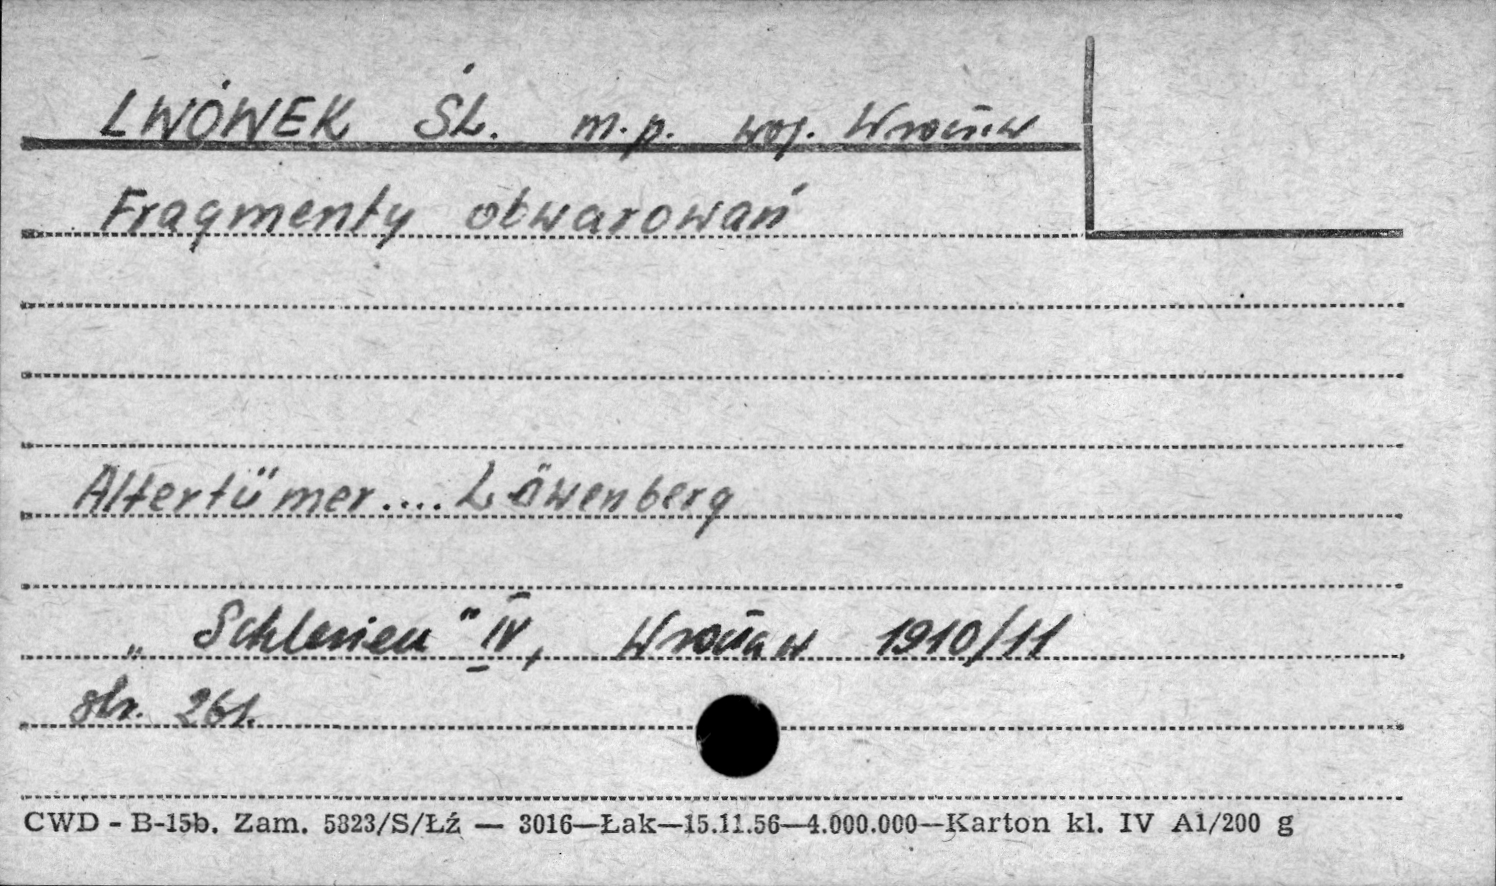 LWÓWEK ŚL. m.p. woj. Wrocław
Fragmenty obwarowań
Altertümer.... Löwenberg
„Schlesien" IV, Wrocław 1910/11
str. 261.
CWD - B-15b. Zam. 5823/S/Łź — 3016—Łak—15.11.56—4.000.000—Karton kl. IV A1/200 g